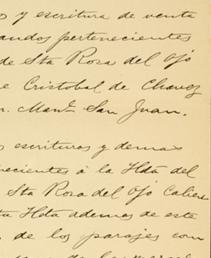 y escritura de venta
andos pertenecientes
de Sta Rosa del Ojo
e Cristobal de Chavez
n. Manl. San Juan.
escrituras y demas
necientes á la Hda del
Sta Rosa del Ojo Calien
ta Hda ademas de este
de los parajes con